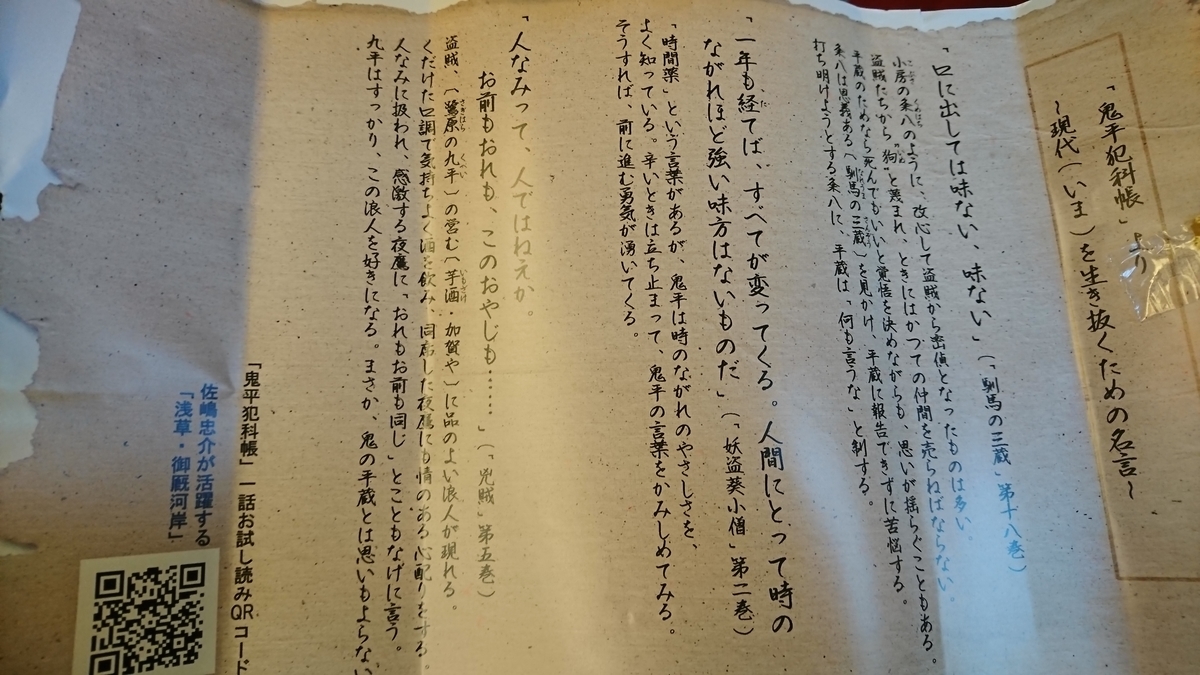 「鬼平犯科帳」より
～現代(いま)を生き抜くための名言～
「口に出しては味ない、味ない」(「馴馬の三蔵」第十八巻)
小房の粂八のように、改心して盗賊から密偵となったものは多い。
盗賊たちから“狗”と蔑まれ、ときにはかつての仲間を売らねばならない。
平蔵のためなら死んでもいいと覚悟を決めながらも、思いが揺らぐこともある。
粂八は恩義ある〔馴馬の三蔵〕を見かけ、平蔵に報告できずに苦悩する。
打ち明けようとする粂八に、平蔵は「何も言うな」と制する。
「一年も経てば、すべてが変ってくる。人間にとって時の
ながれほど強い味方はないものだ」(「妖盗葵小僧」第二巻)
「時間薬」という言葉があるが、鬼平は時のながれのやさしさを、
よく知っている。辛いときは立ち止まって、鬼平の言葉をかみしめてみる。
そうすれば、前に進む勇気が湧いてくる。
「人なみって、人ではねえか。
お前もおれも、このおやじも……」(「兇賊」第五巻)
盗賊、〔鷺原の九平〕の営む〔芋酒・加賀や〕に品のよい浪人が現れる。
くだけた口調で気持ちよく酒を飲み、同席した夜鷹にも情のある心配りをする。
人なみに扱われ、感激する夜鷹に「おれもお前も同じ」とこともなげに言う。
九平はすっかり、この浪人を好きになる。まさか、鬼の平蔵とは思いもよらない
「鬼平犯科帳」一話お試し読みQRコード
佐嶋忠介が活躍する
「浅草・御厩河岸」